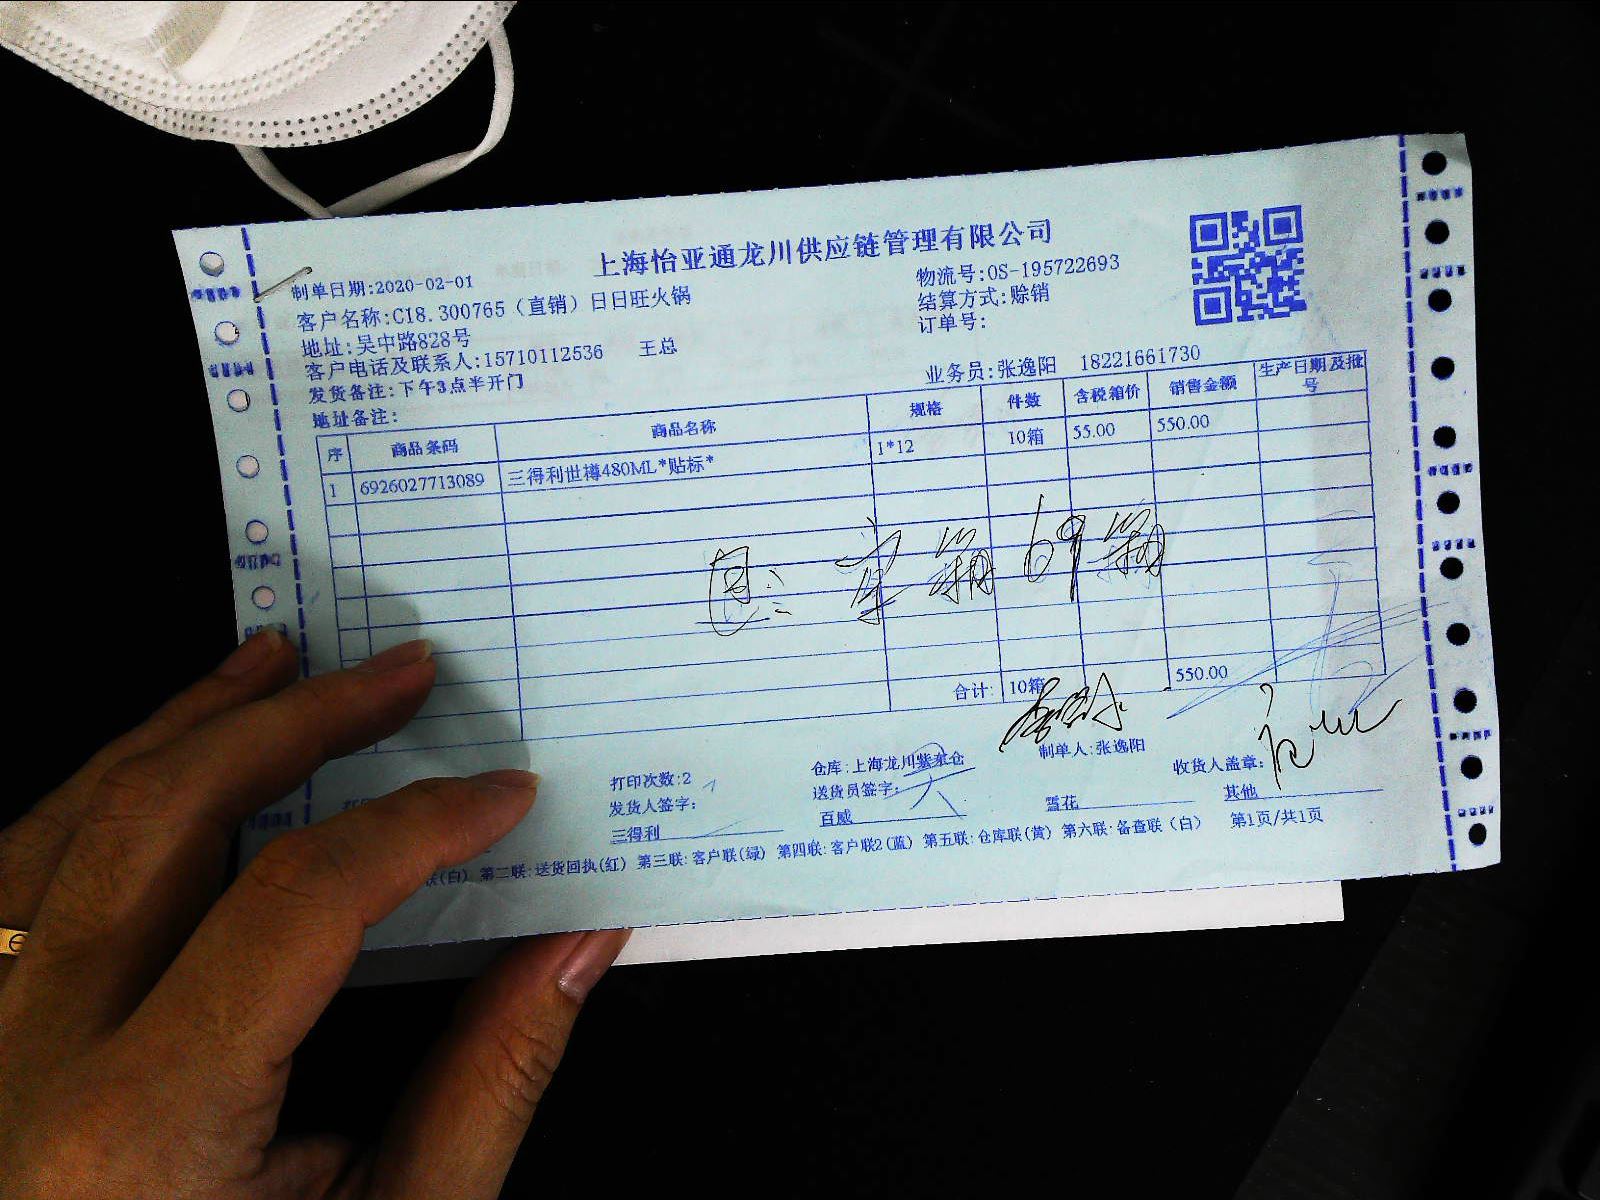 上海怡亚通龙川供应链管理有限公司
制单日期:2020-02-01
物流号:OS-195722693
客户名称:C18.300765（直销）日日旺火锅
结算方式:赊销
地址:吴中路828号
订单号:
客户电话及联系人:15710112536 王总
业务员:张逸阳 18221661730
发货备注:下午3点半开门
地址备注:
序 商品条码 商品名称 规格 件数 含税箱价 销售金额 生产日期及批号
1 6926027713089 三得利世樽480ML*贴标* 1*12 10箱 55.00 550.00
空箱69箱
合计: 10箱 550.00
打印次数:2 仓库:上海龙川紫东仓 制单人:张逸阳 收货人盖章:
发货人签字: 送货员签字:
三得利 百威 雪花 其他
联(白) 第二联:送货回执(红) 第三联:客户联(绿) 第四联:客户联2(蓝) 第五联:仓库联(黄) 第六联:备查联(白) 第1页/共1页